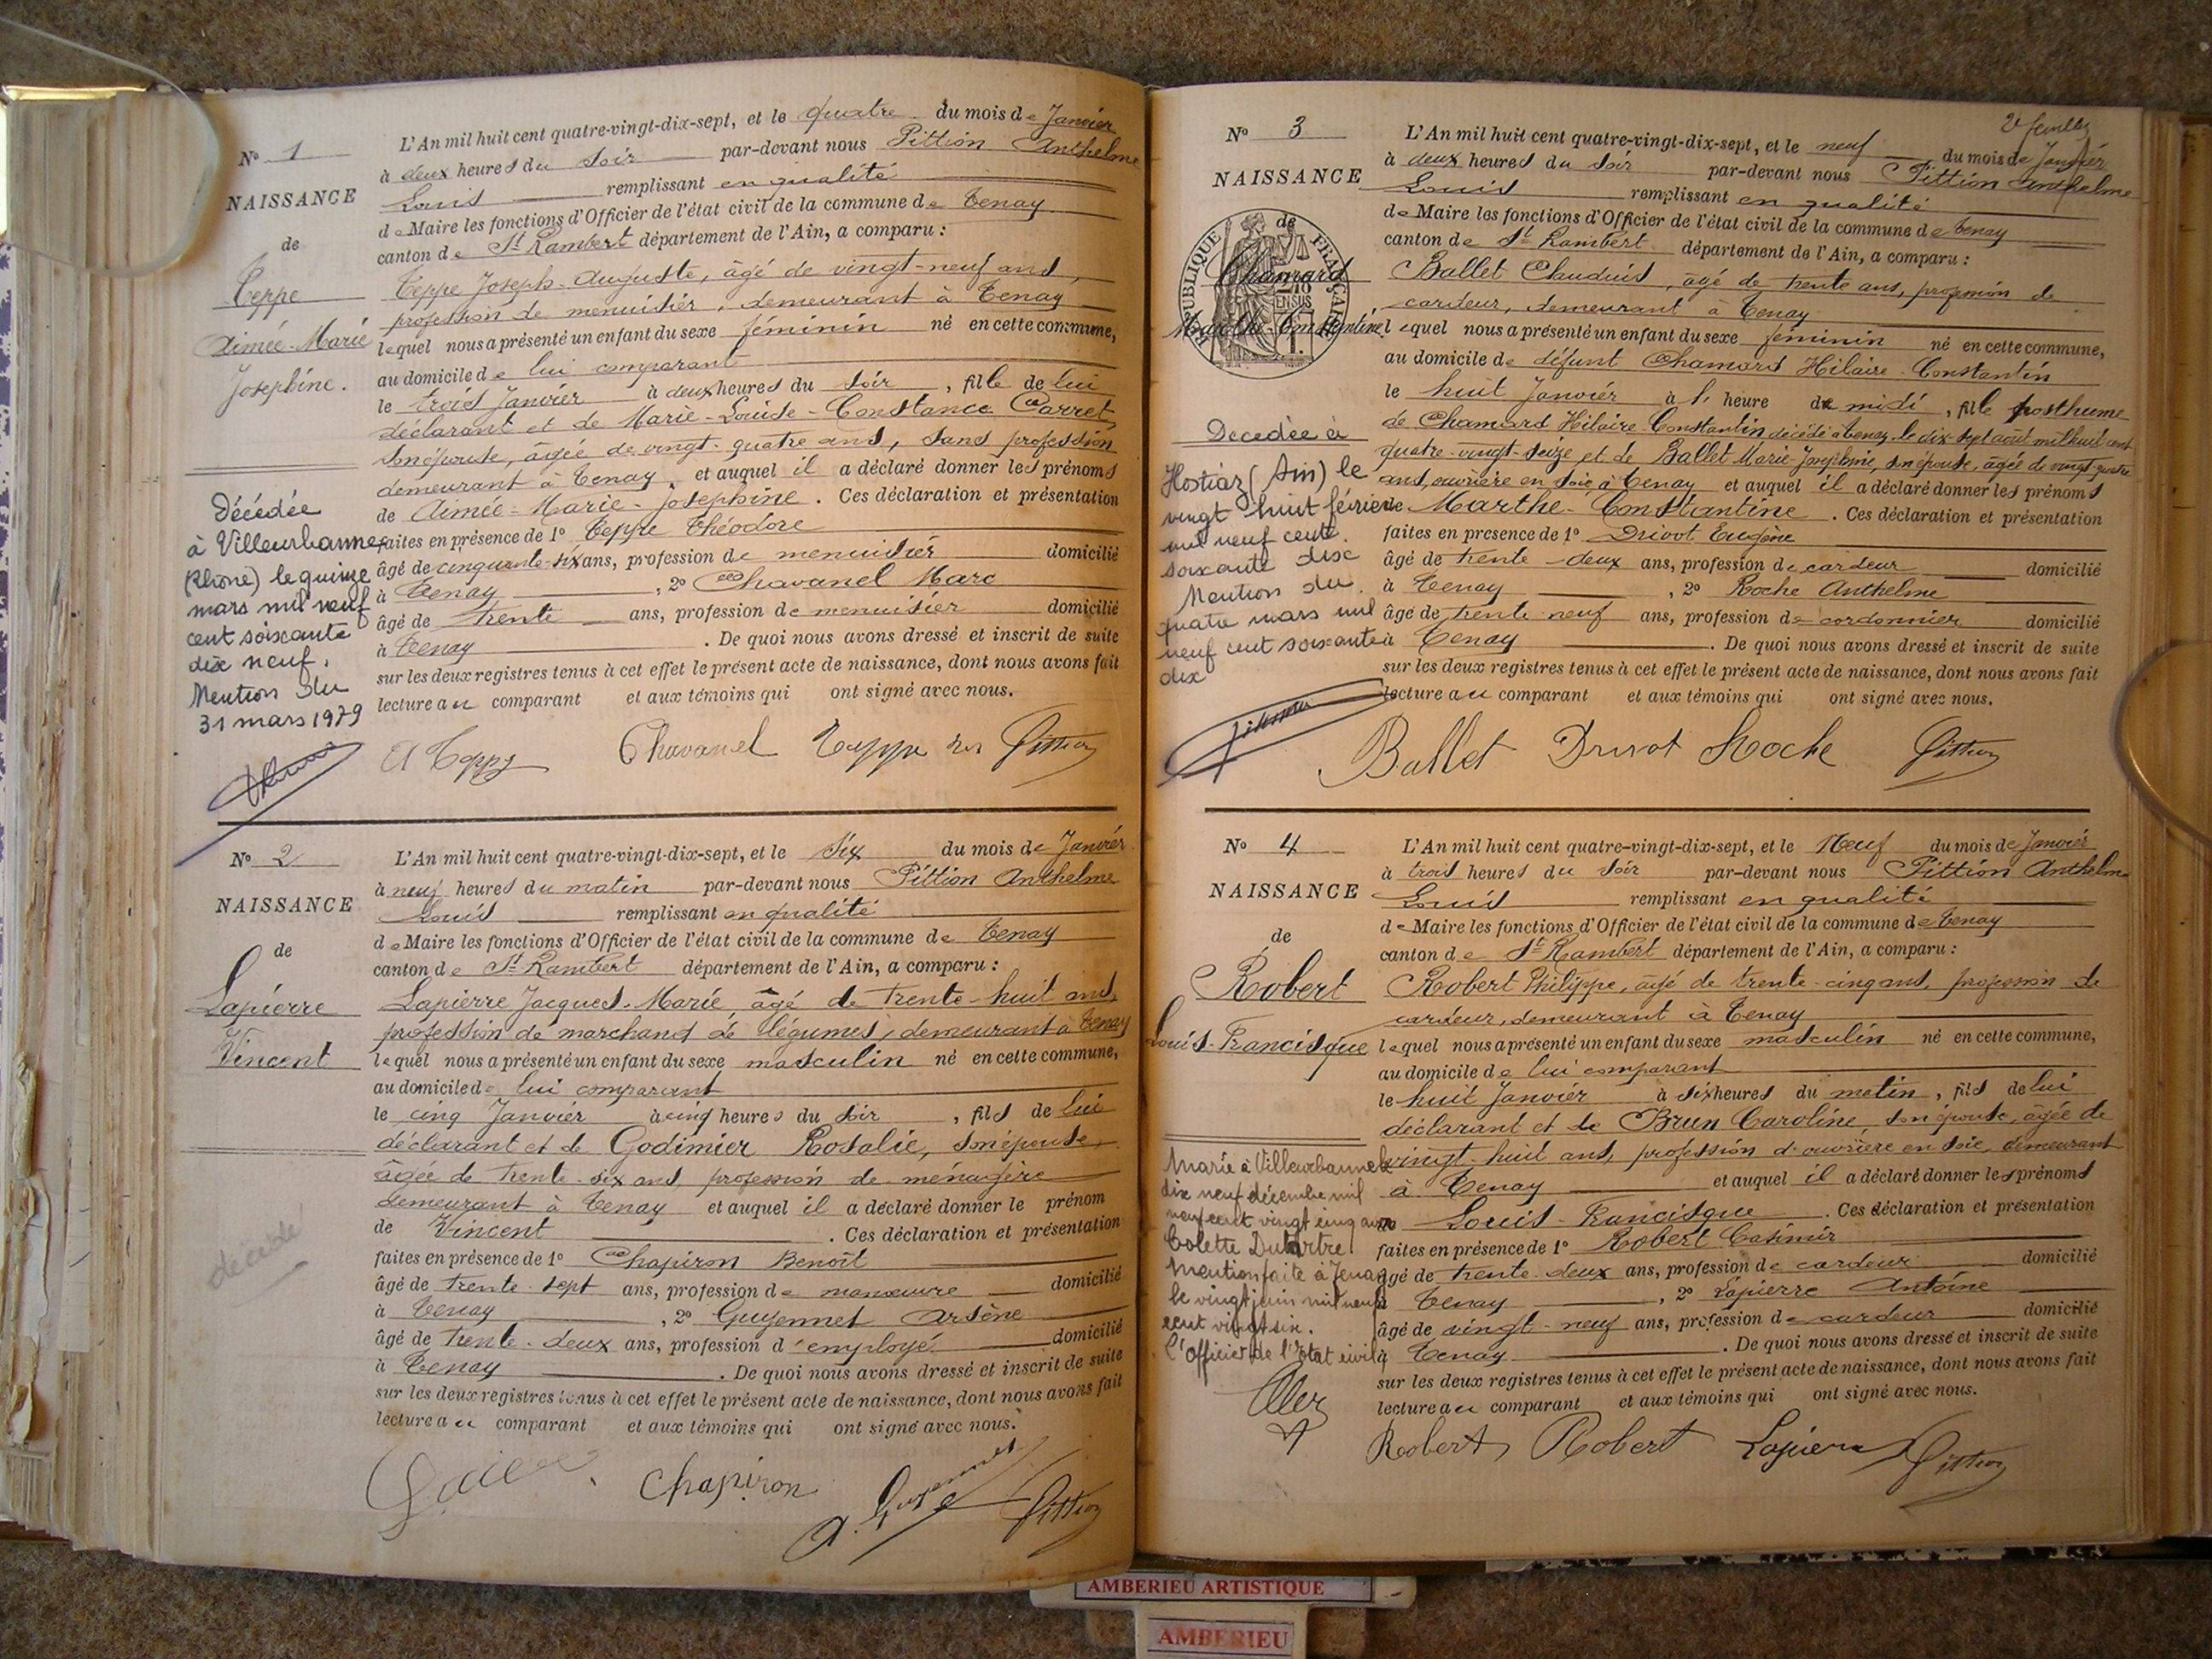 N° 1
NAISSANCE
de
Teppe
Aimée-Marie
Joséphine.
Décédée
à Villeurbanne
(Rhône) le quinze
mars mil neuf
cent soixante
dix neuf.
Mention du
31 mars 1979
L'An mil huit cent quatre-vingt-dix-sept, et le quatre du mois de Janvier
à deux heures du soir par-devant nous Pittion Anthelme
Louis remplissant en qualité
de Maire les fonctions d'Officier de l'état civil de la commune de Tenay
canton de St Rambert département de l'Ain, a comparu :
Teppe Joseph-Auguste, âgé de vingt-neuf ans,
profession de menuisier, demeurant à Tenay
lequel nous a présenté un enfant du sexe féminin né en cette commune,
au domicile de lui comparant
le trois Janvier à deux heures du soir, fille de lui
déclarant et de Marie-Louise-Constance Carret
son épouse, âgée de vingt-quatre ans, sans profession
demeurant à Tenay, et auquel il a déclaré donner les prénoms
de Aimée-Marie-Joséphine. Ces déclaration et présentation
faites en présence de 1° Teppe Théodore
âgé de cinquante-six ans, profession de menuisier domicilié
à Tenay, 2° Chavanel Marc
âgé de trente ans, profession de menuisier domicilié
à Tenay. De quoi nous avons dressé et inscrit de suite
sur les deux registres tenus à cet effet le présent acte de naissance, dont nous avons fait
lecture au comparant et aux témoins qui ont signé avec nous.
Chavanel Teppe Pittion
N° 2
NAISSANCE
de
Lapierre
Vincent
décédé
L'An mil huit cent quatre-vingt-dix-sept, et le six du mois de Janvier
à neuf heures du matin par-devant nous Pittion Anthelme
Louis remplissant en qualité
de Maire les fonctions d'Officier de l'état civil de la commune de Tenay
canton de St Rambert département de l'Ain, a comparu :
Lapierre Jacques-Marie âgé de trente-huit ans,
profession de marchand de légumes, demeurant à Tenay
lequel nous a présenté un enfant du sexe masculin né en cette commune,
au domicile de lui comparant
le cinq Janvier à cinq heures du soir, fils de lui
déclarant et de Godimier Rosalie, son épouse,
âgée de trente-six ans, profession de ménagère
demeurant à Tenay et auquel il a déclaré donner le prénom
de Vincent. Ces déclaration et présentation
faites en présence de 1° Chapiron Benoît
âgé de trente-sept ans, profession de manœuvre domicilié
à Tenay, 2° Guyennet Arsène
âgé de trente-deux ans, profession d'employé domicilié
à Tenay. De quoi nous avons dressé et inscrit de suite
sur les deux registres tenus à cet effet le présent acte de naissance, dont nous avons fait
lecture au comparant et aux témoins qui ont signé avec nous.
Chapiron A. Guyennet Pittion
2e feuillet
N° 3
NAISSANCE
de
RÉPUBLIQUE FRANÇAISE
Chamard
Marthe-Constantine
Décédée à
Hostiaz (Ain) le
vingt huit février
mil neuf cent
soixante dix
Mention du
quatre mars mil
neuf cent soixante
dix
L'An mil huit cent quatre-vingt-dix-sept, et le neuf du mois de Janvier
à deux heures du soir par-devant nous Pittion Anthelme
Louis remplissant en qualité
de Maire les fonctions d'Officier de l'état civil de la commune de Tenay
canton de St Rambert département de l'Ain, a comparu :
Ballet Claudius, âgé de trente ans, profession de
cardeur, demeurant à Tenay
lequel nous a présenté un enfant du sexe féminin né en cette commune,
au domicile de défunt Chamard Hilaire-Constantin
le huit Janvier à l' heure de midi, fille posthume
de Chamard Hilaire Constantin décédé à Tenay le dix sept août mil huit cent
quatre-vingt-seize et de Ballet Marie-Joséphine, son épouse, âgée de vingt-quatre
ans, ouvrière en soie, à Tenay et auquel il a déclaré donner les prénoms
de Marthe-Constantine. Ces déclaration et présentation
faites en présence de 1° Drivot Eugène
âgé de trente-deux ans, profession de cardeur domicilié
à Tenay, 2° Roche Anthelme
âgé de trente neuf ans, profession de cordonnier domicilié
à Tenay. De quoi nous avons dressé et inscrit de suite
sur les deux registres tenus à cet effet le présent acte de naissance, dont nous avons fait
lecture au comparant et aux témoins qui ont signé avec nous.
Ballet Drivot Roche Pittion
N° 4
NAISSANCE
de
Robert
Louis-Francisque
Marié à Villeurbanne le
dix neuf décembre mil
neuf cent vingt cinq avec
Colette Dutartre.
Mention faite à Tenay
le vingt juin mil neuf
cent vingt six.
L'Officier de l'Etat civil
L'An mil huit cent quatre-vingt-dix-sept, et le Neuf du mois de Janvier
à trois heures du soir par-devant nous Pittion Anthelme
Louis remplissant en qualité
de Maire les fonctions d'Officier de l'état civil de la commune de Tenay
canton de St Rambert département de l'Ain, a comparu :
Robert Philippe, âgé de trente-cinq ans, profession de
cardeur, demeurant à Tenay
lequel nous a présenté un enfant du sexe masculin né en cette commune,
au domicile de lui comparant
le huit Janvier à six heures du matin, fils de lui
déclarant et de Brun Caroline, son épouse, âgée de
vingt-huit ans, profession d'ouvrière en soie, demeurant
à Tenay et auquel il a déclaré donner les prénoms
Louis-Francisque. Ces déclaration et présentation
faites en présence de 1° Robert Casimir
âgé de trente-deux ans, profession de cardeur domicilié
à Tenay, 2° Lapierre Antoine
âgé de vingt-neuf ans, profession de cardeur domicilié
à Tenay. De quoi nous avons dressé et inscrit de suite
sur les deux registres tenus à cet effet le présent acte de naissance, dont nous avons fait
lecture au comparant et aux témoins qui ont signé avec nous.
Robert Robert Lapierre Pittion
AMBERIEU ARTISTIQUE
AMBERIEU